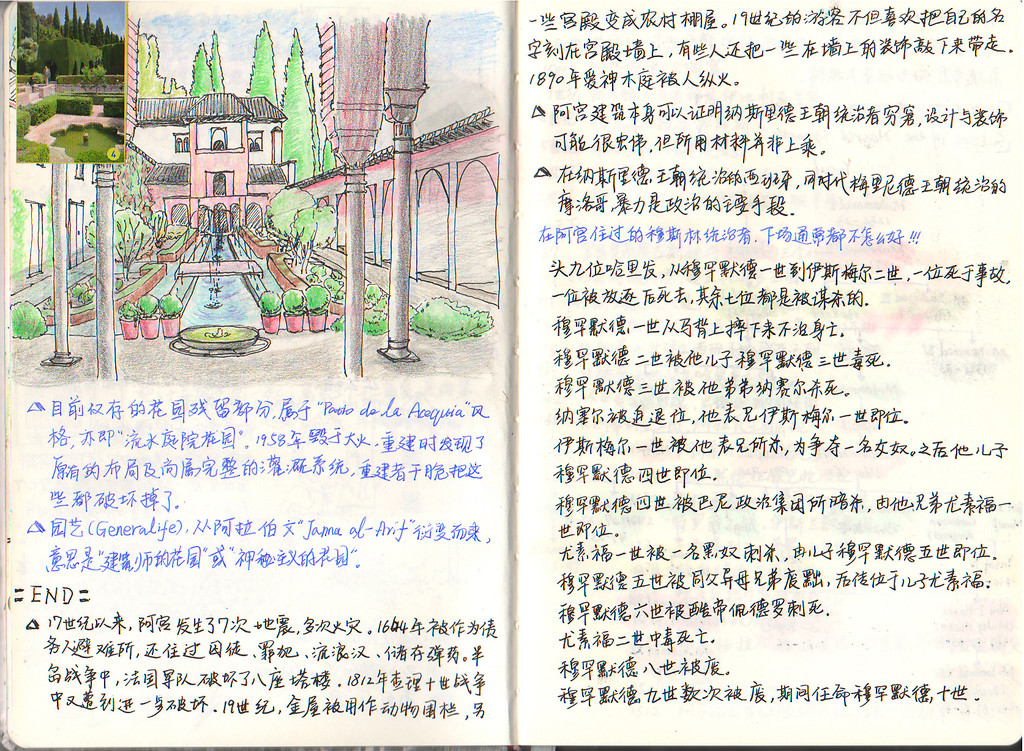 4
△ 目前仅存的花园残留部分,属于"Patio de la Acequia"风
格,亦即"流水庭院花园"。1958年毁于大火.重建时发现了
原有的布局及尚属完整的灌溉系统,重建者干脆把这
些都破坏掉了.
△ 园艺(Generalife),从阿拉伯文"Janna al-Arif"衍变而来,
意思是"建筑师的花园"或"神秘主义的花园".
=END=
△ 17世纪以来,阿宫发生了7次地震,多次火灾。1644年被作为债
务人避难所,还住过囚徒、罪犯、流浪汉、储存弹药。半
岛战争中,法国军队破坏了八座塔楼.1812年查理十世战争
中又遭到进一步破坏.19世纪,金屋被用作动物围栏,另
一些宫殿变成农村棚屋。19世纪的游客不但喜欢把自己的名
字刻在宫殿墙上,有些人还把一些在墙上的装饰敲下来带走。
1890年爱神木庭被人纵火。
△ 阿宫建筑本身可以证明纳斯里德王朝统治者穷窘,设计与装饰
可能很宏伟,但所用材料并非上乘。
△ 在纳斯里德王朝统治的西班牙,同时代梅里尼德王朝统治的
摩洛哥,暴力是政治的主要手段.
在阿宫住过的穆斯林统治者,下场通常都不怎么好!!!
头九位哈里发,从穆罕默德一世到伊斯梅尔二世,一位死于事故,
一位被放逐后死去,其余七位都是被谋杀的.
穆罕默德一世从马背上摔下来不治身亡.
穆罕默德二世被他儿子穆罕默德三世毒死.
穆罕默德三世被他弟弟纳赛尔杀死.
纳塞尔被迫退位,他表兄伊斯梅尔一世即位.
伊斯梅尔一世被他表兄所杀,为争夺一名女奴.之后他儿子
穆罕默德四世即位.
穆罕默德四世被巴尼政治集团所暗杀,由他兄弟尤素福一
世即位.
尤素福一世被一名黑奴刺杀,由儿子穆罕默德五世即位.
穆罕默德五世被同父异母兄弟废黜,后传位于儿子尤素福.
穆罕默德六世被酷帝佩德罗刺死.
尤素福二世中毒死亡.
穆罕默德八世被废.
穆罕默德九世数次被废,期间任命穆罕默德十世.